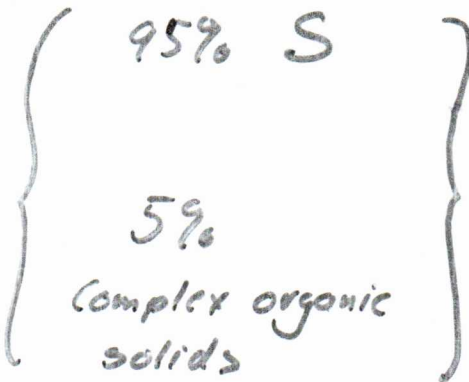 95% S
5%
Complex organic
solids